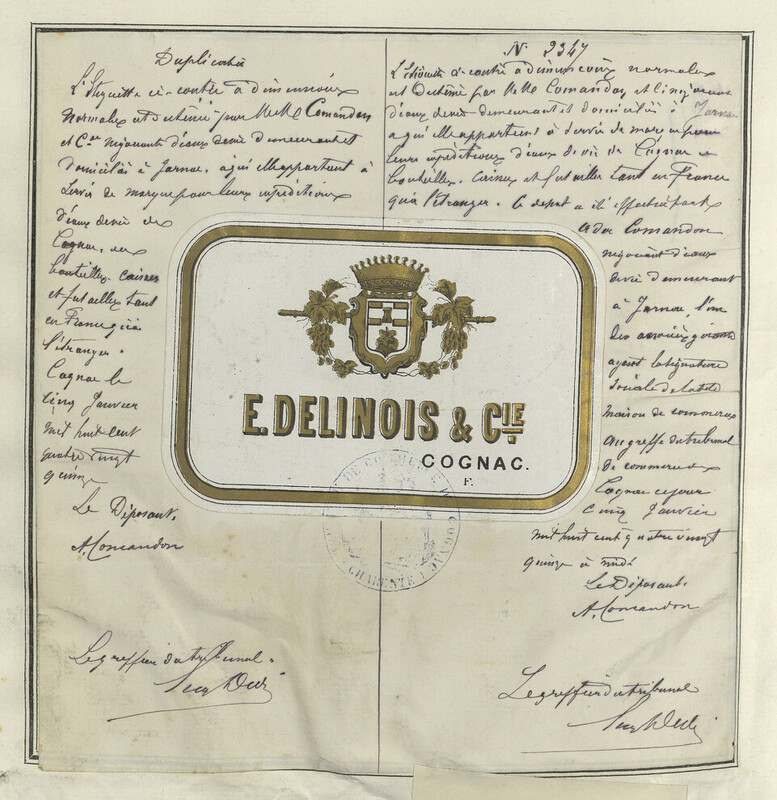 Duplicata
L'Etiquette ci-contre à dimensions
normales est destinée par MM. Comandon
et Cie négociants d'eaux de vie demeurant et
domiciliés à Jarnac, à qui elle appartient à
servir de marque pour leurs expéditions
d'eaux de vie de
Cognac, en
bouteilles caisses
et futailles tant
en France qu'à
l'étranger.
Cognac le
cinq Janvier
mil huit cent
quatre vingt
quinze
Le Déposant,
A. Comandon
Le greffier du tribunal.
N° 2347
L'étiquette ci-contre à dimensions normales
est destinée par MM. Comandon et Cie négociants
d'eaux de vie demeurant et domiciliés à Jarnac
à qui elle appartient à servir de marque pour
leurs expéditions d'eaux de vie de Cognac en
bouteilles, caisses et futailles tant en France
qu'à l'étranger. Ce dépôt a été effectué par
Ador Comandon
négociant d'eaux
de vie demeurant
à Jarnac, l'un
des associés gérants
ayant la signature
sociale de la dite
maison de commerce
au greffe du tribunal
de commerce de
Cognac ce jour
cinq Janvier
mil huit cent quatre vingt
quinze à midi
Le Déposant,
A. Comandon
Le greffier du tribunal
E. DELINOIS & CIE
COGNAC.
F.
COGNAC
CHARENTE